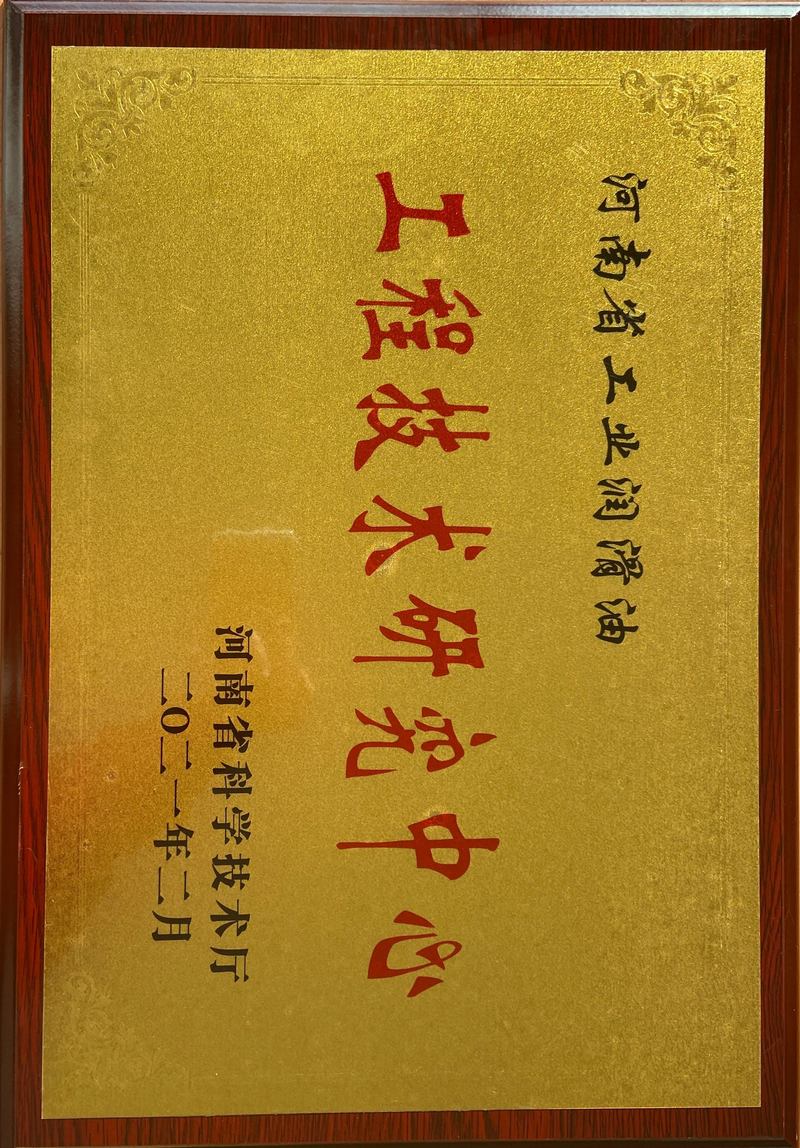 河南省工业润滑油
工程技术研究中心
河南省科学技术厅
二〇二一年二月